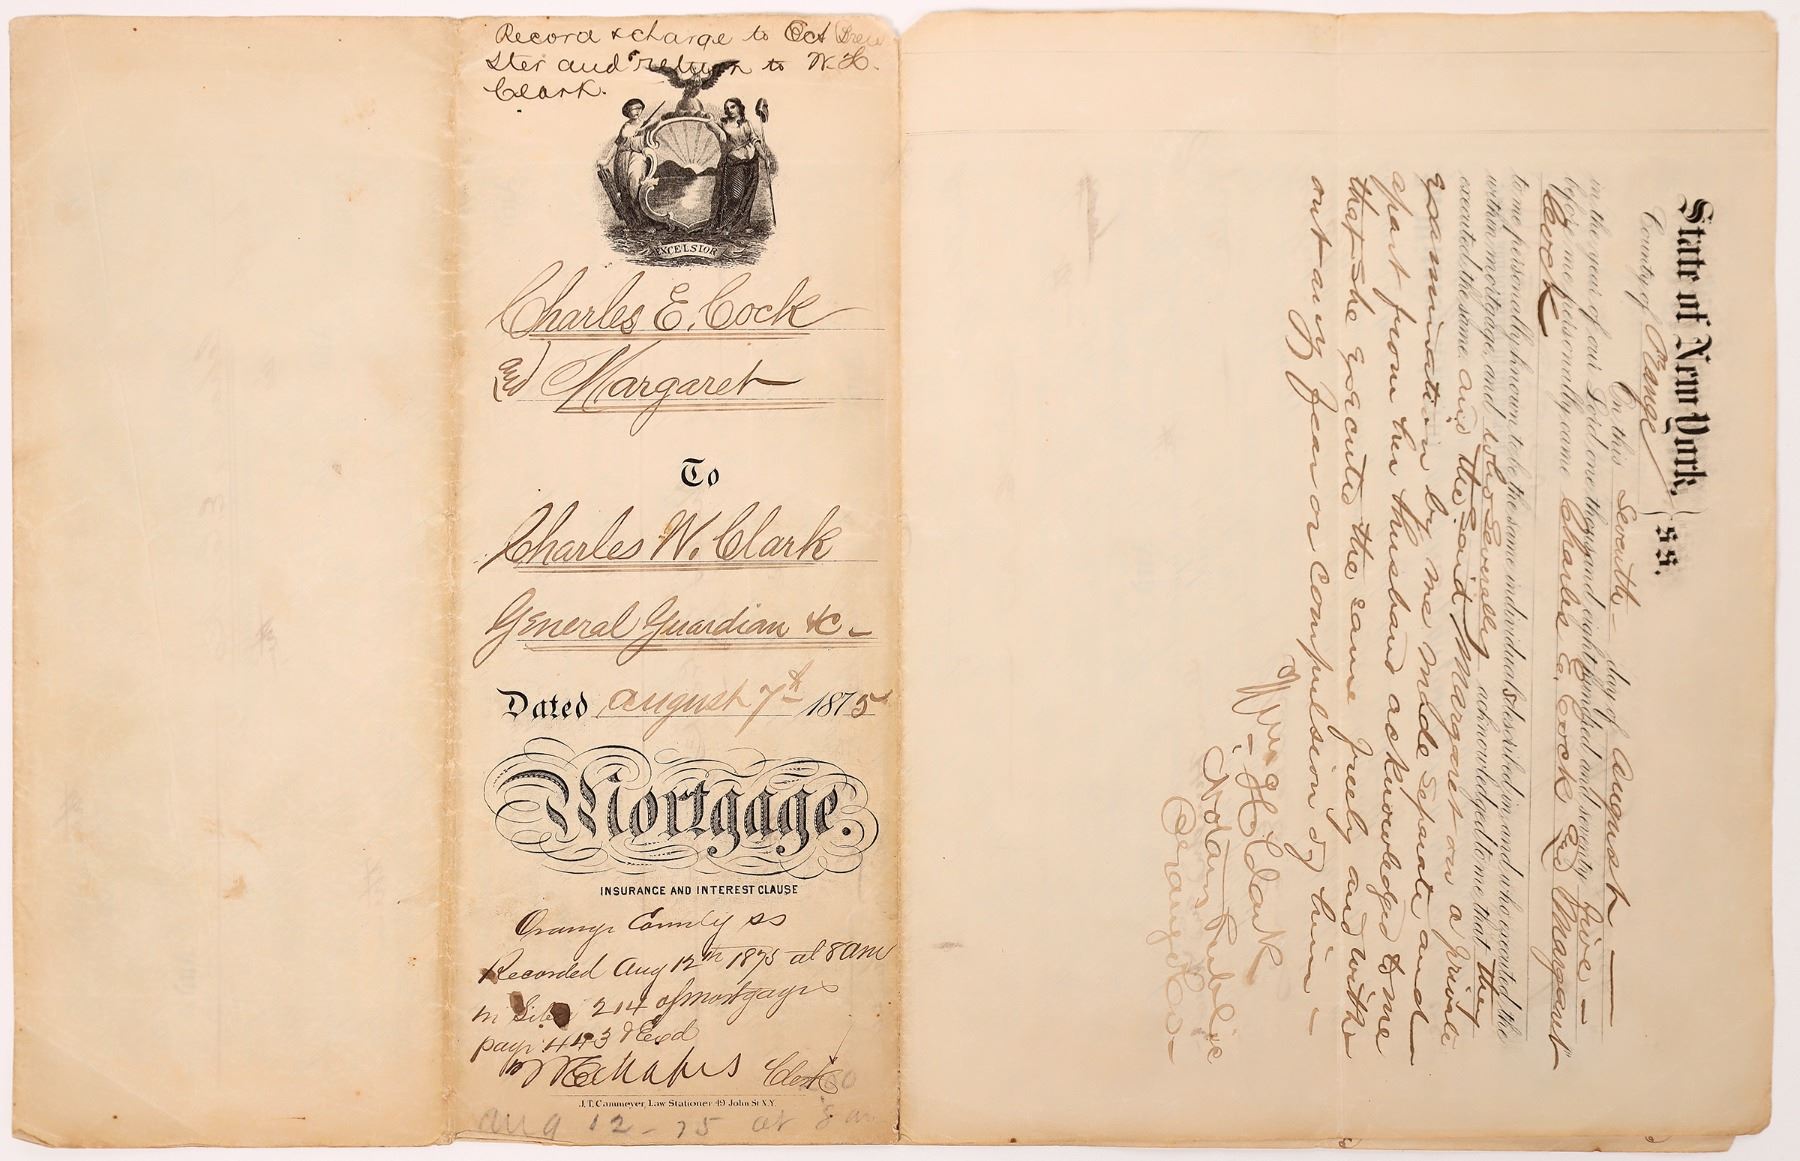 Record & charge to Oct Brew
ster and return to W. H.
Clark.
EXCELSIOR
Charles E. Cock
and Margaret
To
Charles W. Clark
General Guardian &c -
Dated August 7th 1875
Mortgage.
INSURANCE AND INTEREST CLAUSE
Orange County ss
Recorded Aug 12th 1875 at 8 am
in Liber 214 of mortgages
page 443 & Exd
Clerk
J.T. Cammeyer, Law Stationer 49 John St N.Y.
Aug 12-75 at 8 am
State of New York,
County of Orange } ss.
On this Seventh - day of August -
in the year of our Lord one thousand eight hundred and seventy five -
before me personally came Charles E. Cock and Margaret
Cock
to me personally known to be the same individuals described in, and who executed the
within mortgage, and who severally acknowledged to me that they
executed the same, and the said Margaret on a private
examination by me made separate and
apart from her husband acknowledged to me
that she executed the same freely and with
out any fear or compulsion of him -
Wm H Clark
Notary Public
Orange Co -